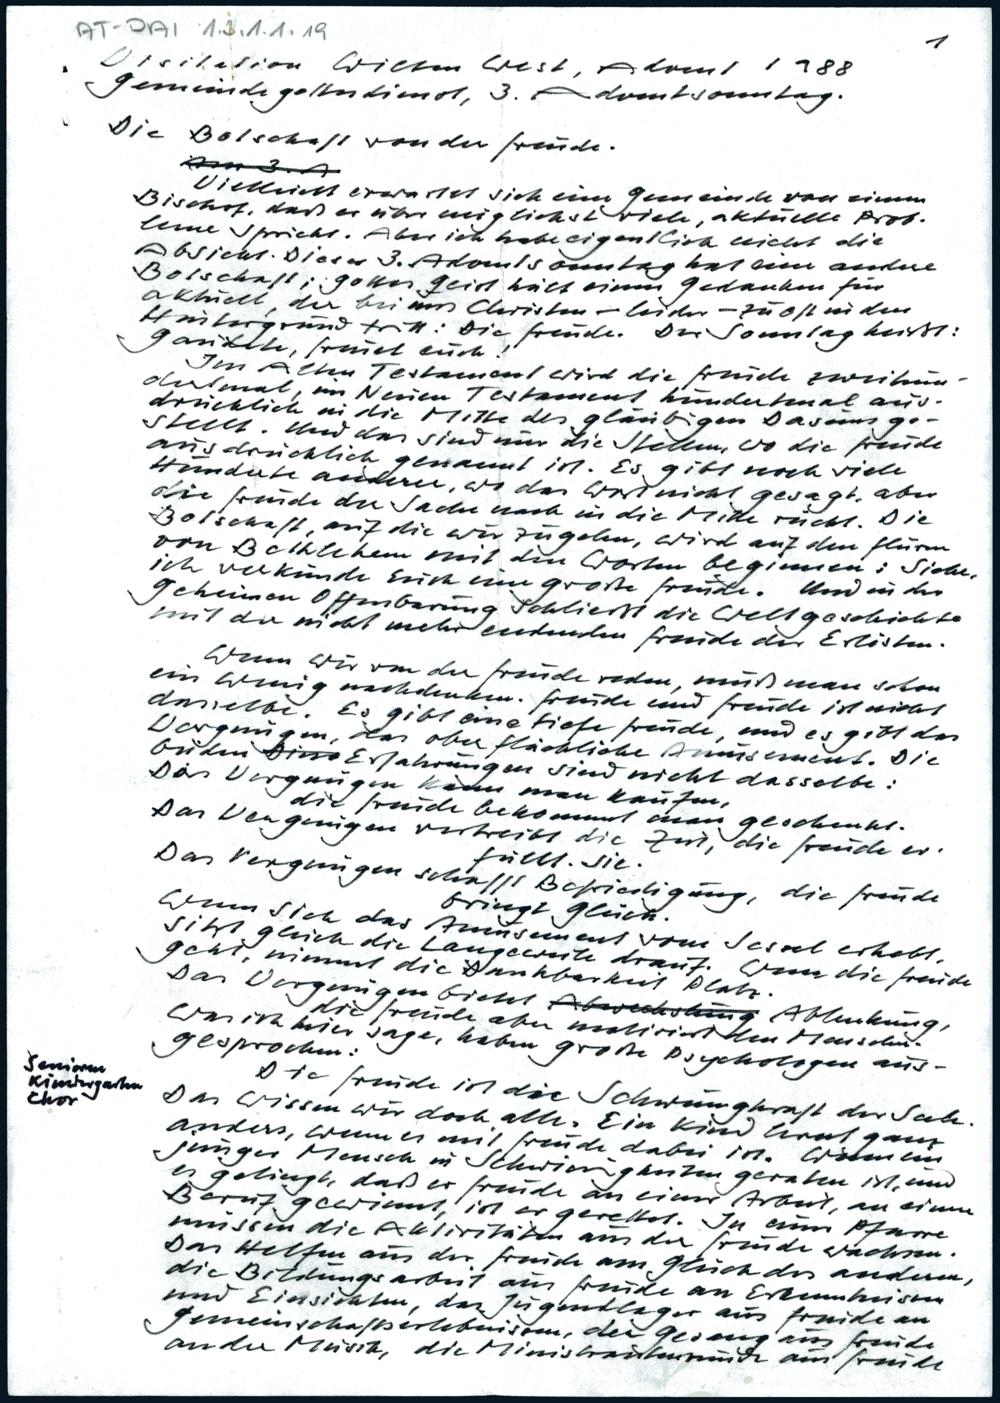 AT-DAI 1.3.1.1.19
1
Visitation Wilten West, Advent 1988
Gemeindegottesdienst, 3. Adventsonntag.
Die Botschaft von der Freude.
Am 3. A
Vielleicht erwartet sich eine Gemeinde von einem
Bischof, daß er über möglichst viele, aktuelle Prob-
leme spricht. Aber ich habe eigentlich nicht die
Absicht. Dieser 3. Adventsonntag hat eine andere
Botschaft; Gottes Geist hält einen Gedanken für
aktuell, der bei uns Christen – leider – zu oft in den
Hintergrund tritt: Die Freude. Der Sonntag heißt:
Gaudete, freuet euch.
Im Alten Testament wird die Freude zweihun-
dertmal, im Neuen Testament hundertmal aus-
drücklich in die Mitte des gläubigen Daseins ge-
stellt. Und das sind nur die Stellen, wo die Freude
ausdrücklich genannt ist. Es gibt noch viele
Hunderte anderer, wo das Wort nicht gesagt, aber
die Freude der Sache nach in die Mitte rückt. Die
Botschaft, auf die wir zugehen, wird auf den Fluren
von Bethlehem mit den Worten beginnen: Siehe,
ich verkünde Euch eine große Freude. Und in der
Geheimen Offenbarung schließt die Weltgeschichte
mit der nicht mehr endenden Freude der Erlösten.
Wenn wir von der Freude reden, muß man schon
ein wenig nachdenken. Freude und Freude ist nicht
dasselbe. Es gibt eine tiefe Freude, und es gibt das
Vergnügen, das oberflächliche Amusement. Die
beiden Erfahrungen sind nicht dasselbe:
Das Vergnügen kann man kaufen,
die Freude bekommt man geschenkt.
Das Vergnügen vertreibt die Zeit, die Freude er-
füllt sie.
Das Vergnügen schafft Befriedigung, die Freude
bringt Glück.
Wenn sich das Amusement vom Sessel erhebt,
sitzt gleich die Langeweile drauf. Wenn die Freude
geht, nimmt die Dankbarkeit Platz.
Das Vergnügen bietet Abwechslung Ablenkung,
die Freude aber motiviert den Menschen.
Was ich hier sage, haben große Psychologen aus-
gesprochen:
Die Freude ist die Schwungkraft der Seele.
Senioren
Kindergarten
Chor
Das wissen wir doch alle. Ein Kind lernt ganz
anders, wenn es mit Freude dabei ist. Wenn ein
junger Mensch in Schwierigkeiten geraten ist, und
es gelingt, daß er Freude an einer Arbeit, an einem
Beruf gewinnt, ist er gerettet. In einer Pfarre
müssen die Aktivitäten aus der Freude wachsen.
Das Helfen aus der Freude am Glück des anderen,
die Bildungsarbeit aus Freude an Erkenntnissen
und Einsichten, das Jugendlager aus Freude an
Gemeinschaftserlebnissen, der Gesang aus Freude
an der Musik, die Ministrantenrunde aus Freude